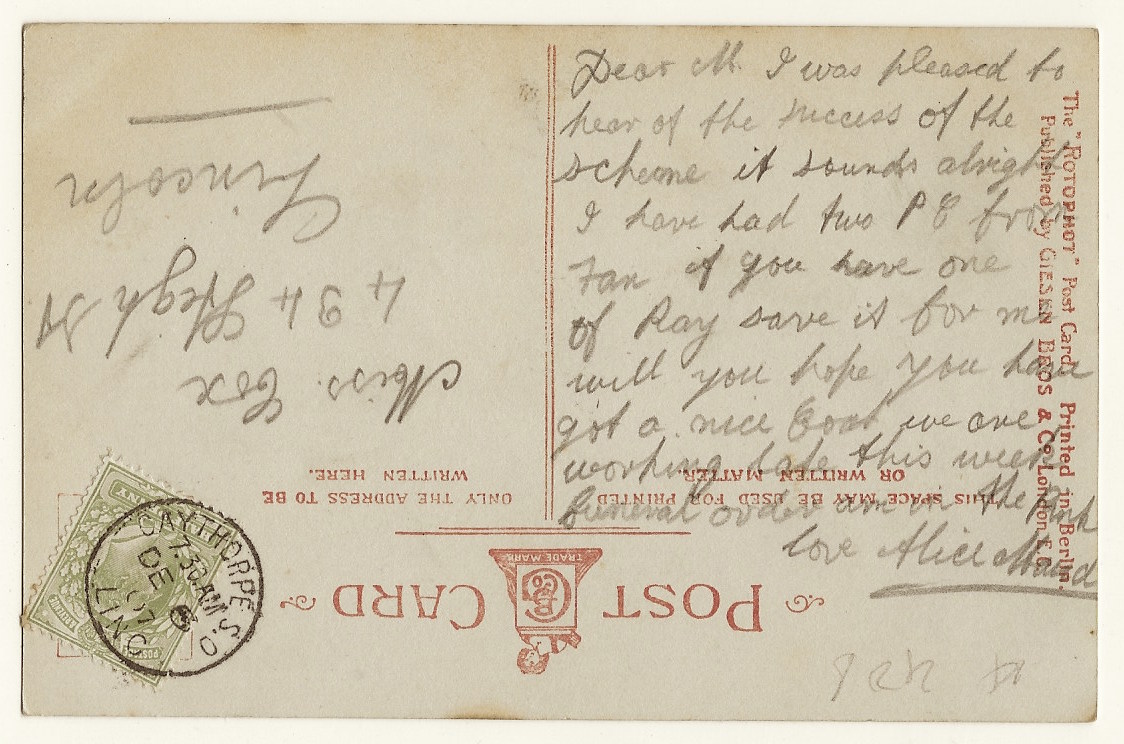 Dear M. I was pleased to
hear of the success of the
scheme it sounds alright
I have had two P C from
Fan if you have one
of Ray save it for me
will you hope you have
got a nice Coat we are
working late this week
funeral order am in the Pink
love Alice Maud
Miss. Cox
434 High St
Lincoln
POST CARD
TRADE MARK
THIS SPACE MAY BE USED FOR PRINTED
OR WRITTEN MATTER.
ONLY THE ADDRESS TO BE
WRITTEN HERE.
The "ROTOPHOT" Post Card. Printed in Berlin.
Published by GIESEN BROS & Co London E.C.
CAYTHORPE S.O
7 30 AM
DE
07
LINC